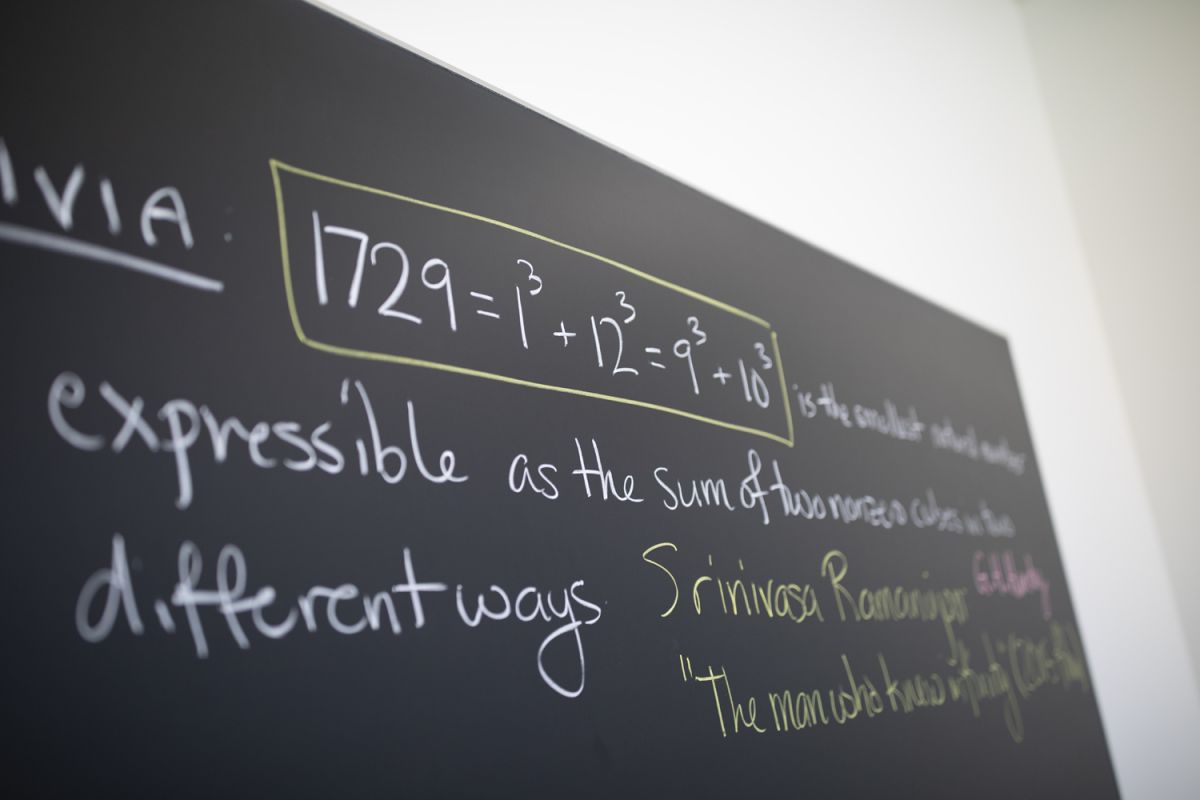 IVIA: 1729 = 1³ + 12³ = 9³ + 10³ is the smallest natural number
expressible as the sum of two nonzero cubes in two
different ways Srinivasa Ramanujan G.H. Hardy
"The man who knew infinity"